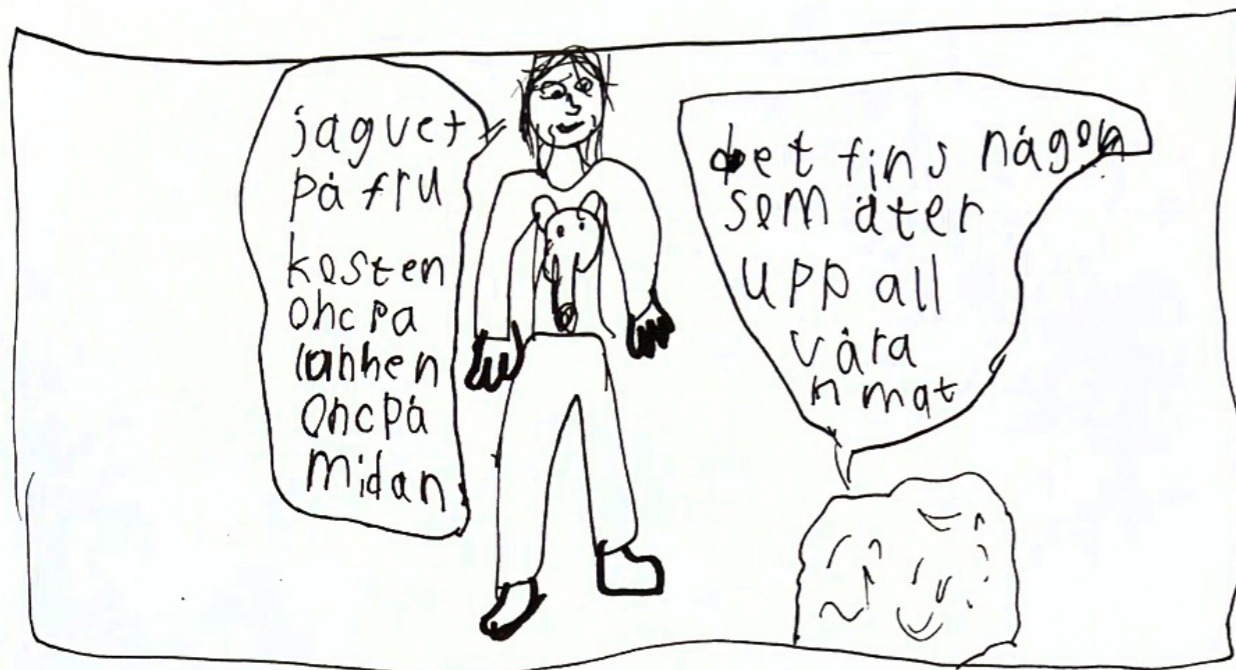 jag vet
på fru
kosten
ohc pa
lanhen
ohc på
midan
det fins någon
som äter
upp all
våra
n mat